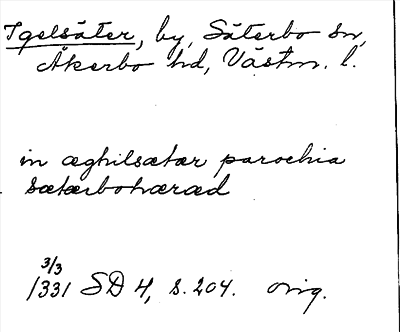 Igelsäter, by, Säterbo sn,
Åkerbo hd, Västm. l.
in æghilsætær parochia
sætærbohæræd
3/3
1331 SD 4, s. 204. orig.